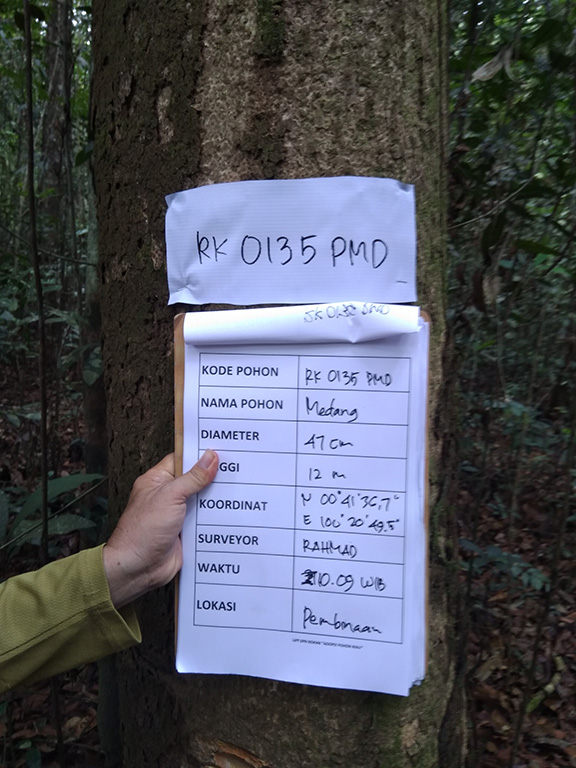 RK 0135 PMD
KODE POHON RK 0135 PMD
NAMA POHON Medang
DIAMETER 47 cm
GGI 12 m
KOORDINAT N 00°41'36,7"
E 100°20'49.5"
SURVEYOR RAHMAD
WAKTU 10.09 WIB
LOKASI Pembinaan